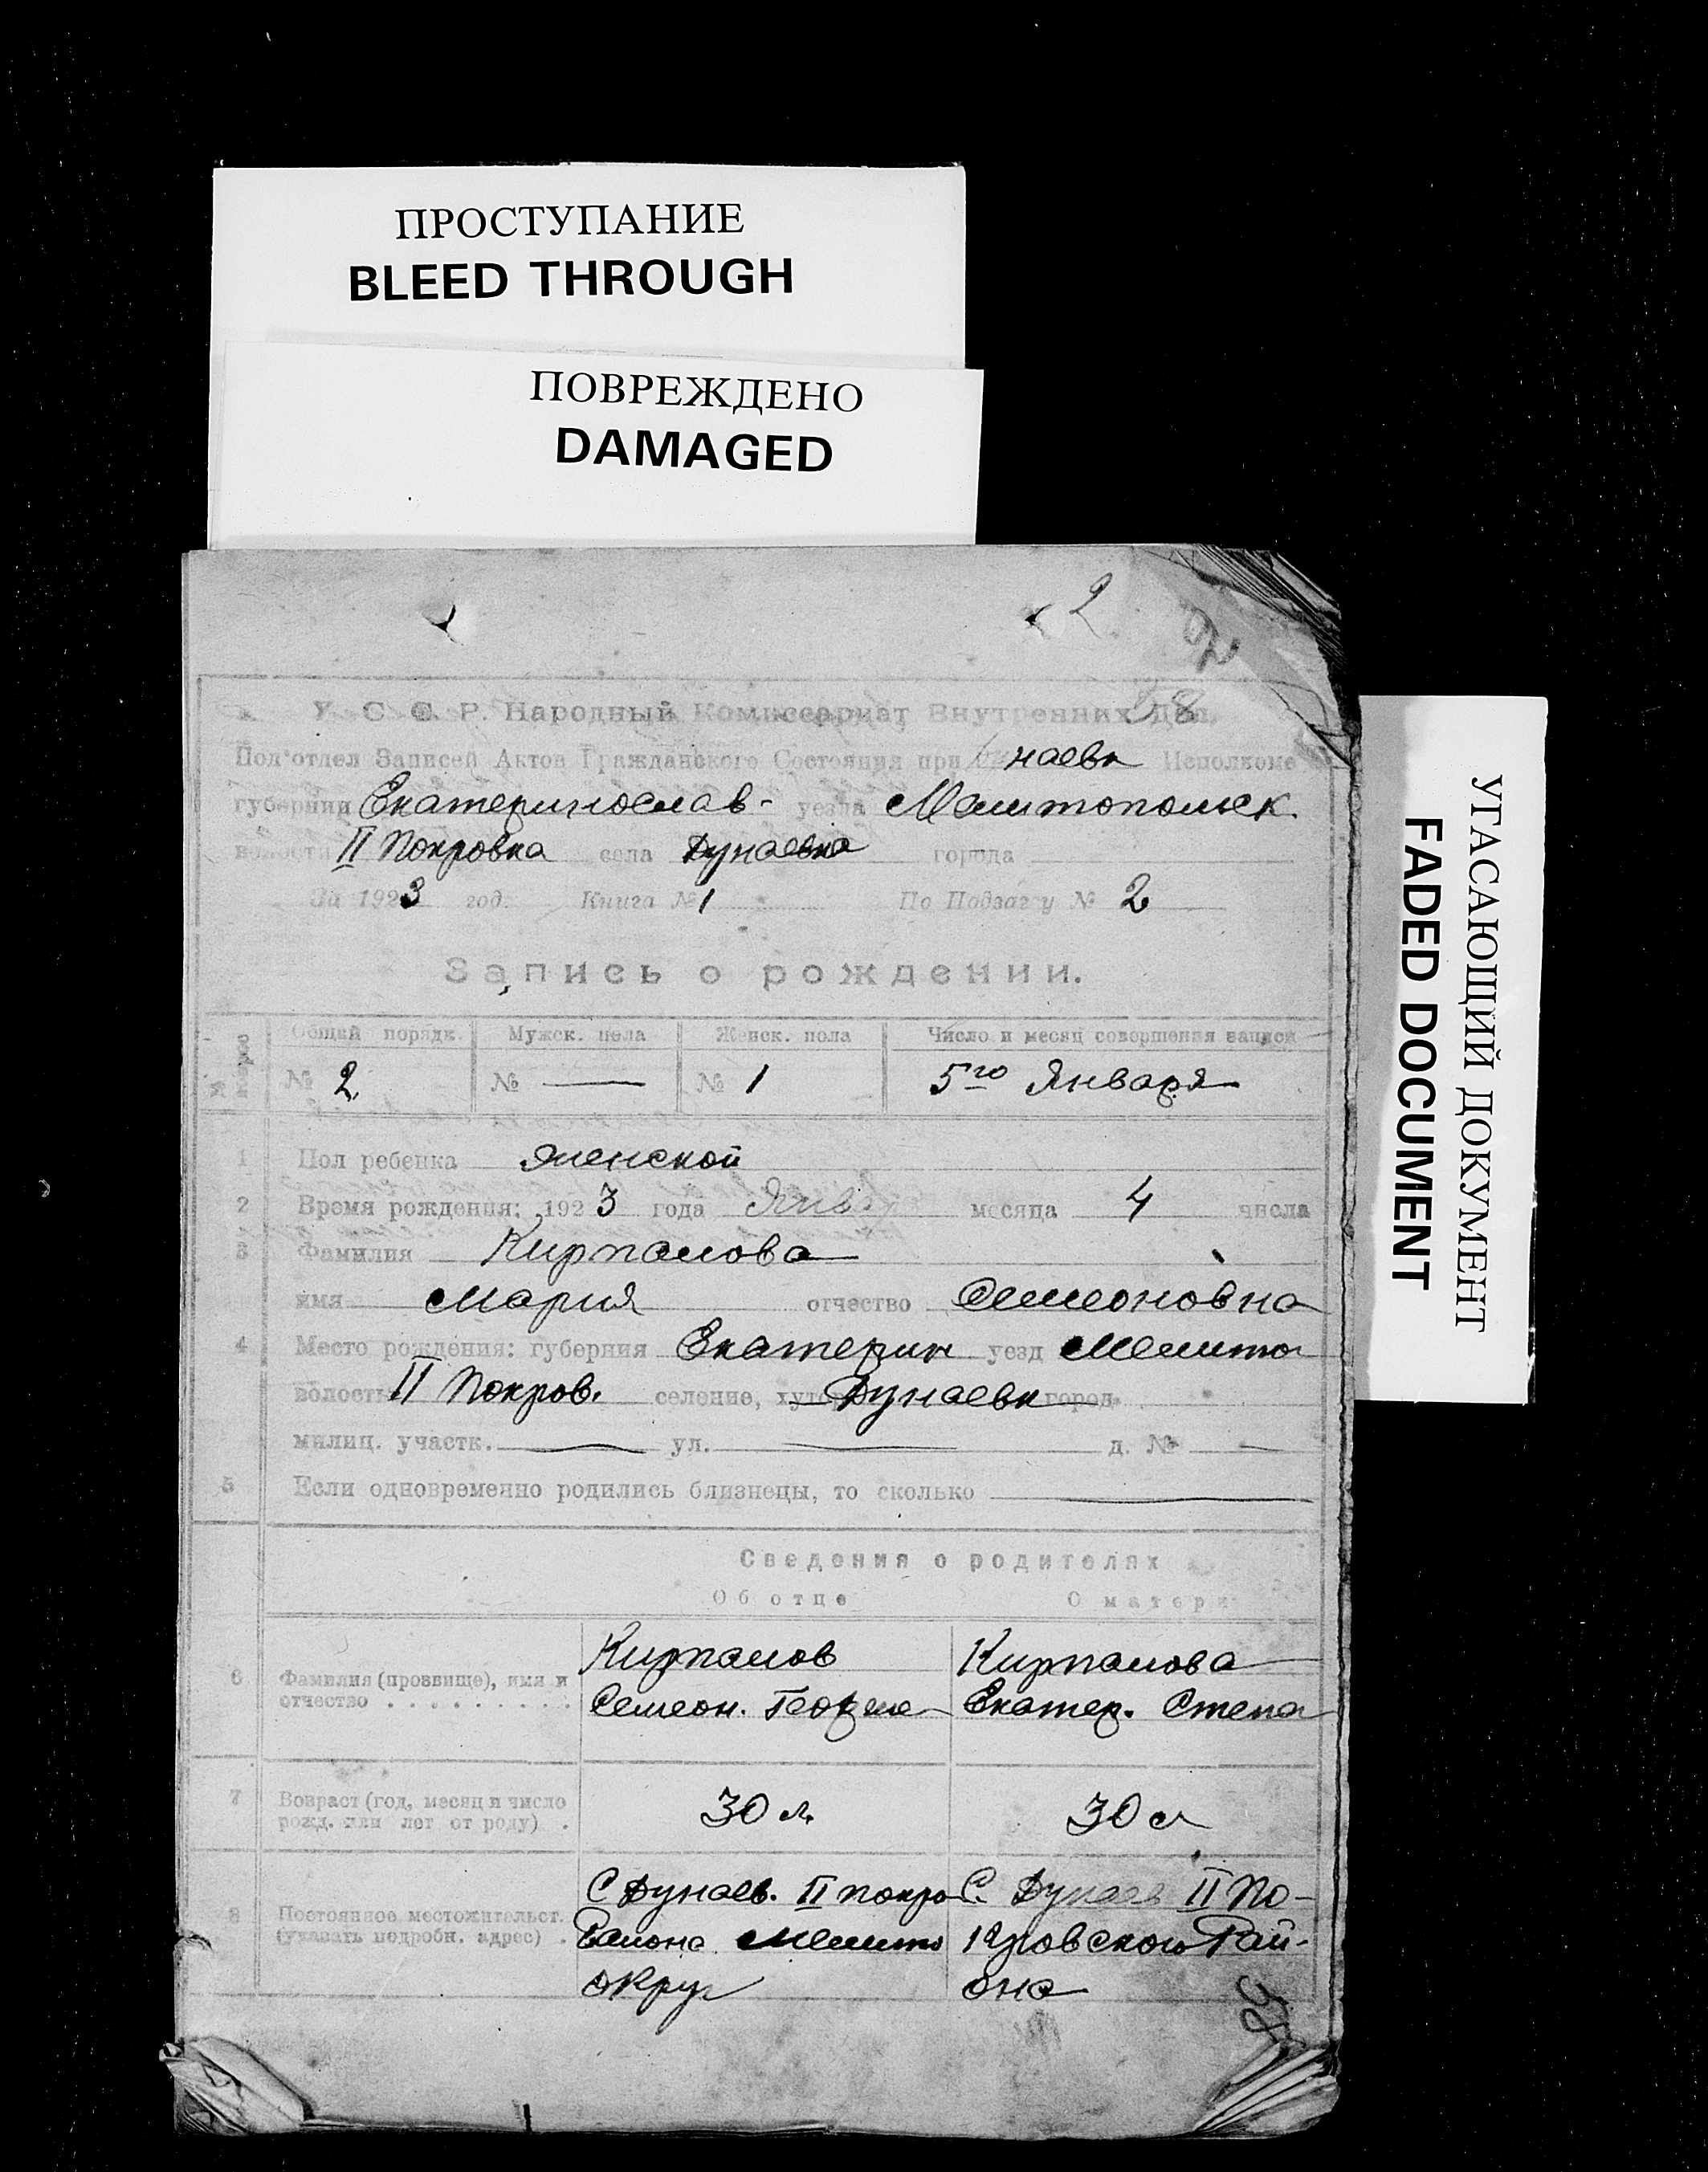 ПРОСТУПАНИЕ
BLEED THROUGH
ПОВРЕЖДЕНО
DAMAGED
2
58
У. С. С. Р. Народный Комиссариат Внутренних Дел.
Под'отдел Записей Актов Гражданского Состояния при наевк Исполкоме
губернии Екатеринослав- уезда Мелитопольск.
волости II Покровка села Дунаевка города
За 1923 год. Книга № 1 По Подзагу № 2
Запись о рождении.
Общий порядк. Мужск. пола Женск. пола Число и месяц совершения записи
№ 2 № — № 1 5го Января
1 Пол ребенка женской
2 Время рождения: 1923 года Январ месяца 4 числа
3 Фамилия Кирпалова
имя Мария отчество Семеоновна
4 Место рождения: губерния Екатерин уезд Мелито
волость II Покров. селение, Дунаевк город
милиц. участк. — ул. — д. № —
5 Если одновременно родились близнецы, то сколько —
Сведения о родителях
Об отце О матери
6 Фамилия (прозвище), имя и отчество
Кирпалов
Семеон. Георгие
Кирпалова
Екатер. Степа
7 Возраст (год, месяц и число рожд. или лет от роду) .
30 л.
30 л
8 Постоянное местожительст. (указать подробн. адрес) .
С Дунаев. II покро
Района Мелито
округ
С. Дунаев II По-
кровского Рай-
она
УГАСАЮЩИЙ ДОКУМЕНТ
FADED DOCUMENT